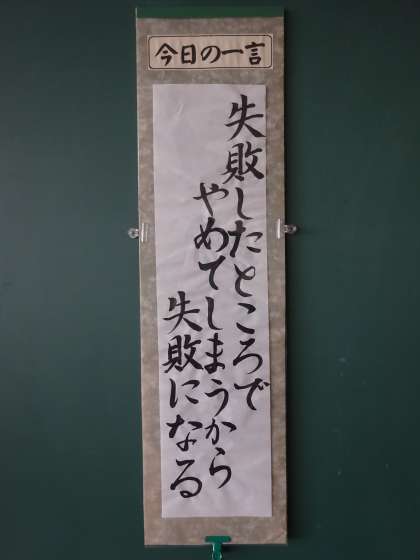 今日の一言
失敗したところで
やめてしまうから
失敗になる